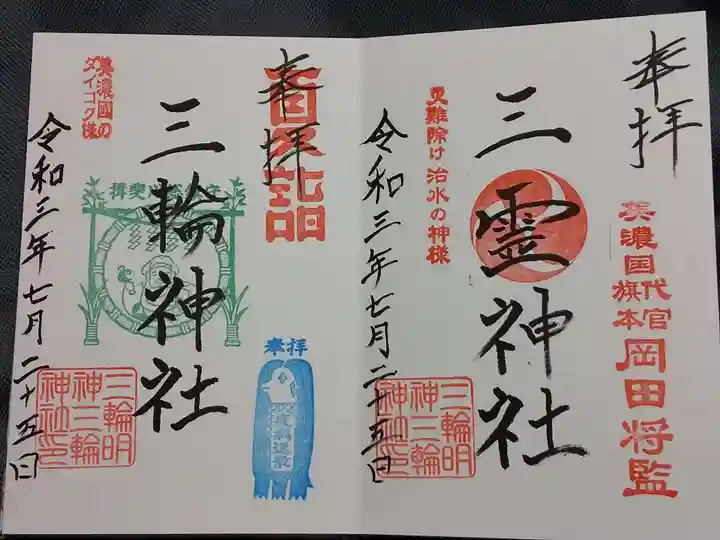 奉拝
美濃国代官
旗本
岡田将監
三霊神社
災難除け 治水の神様
令和三年七月二十五日
三輪明
神三輪
神社印
奉拝
三輪神社
奉拝
美濃國の
ダイコク様
令和三年七月二十五日
三輪明
神三輪
神社印